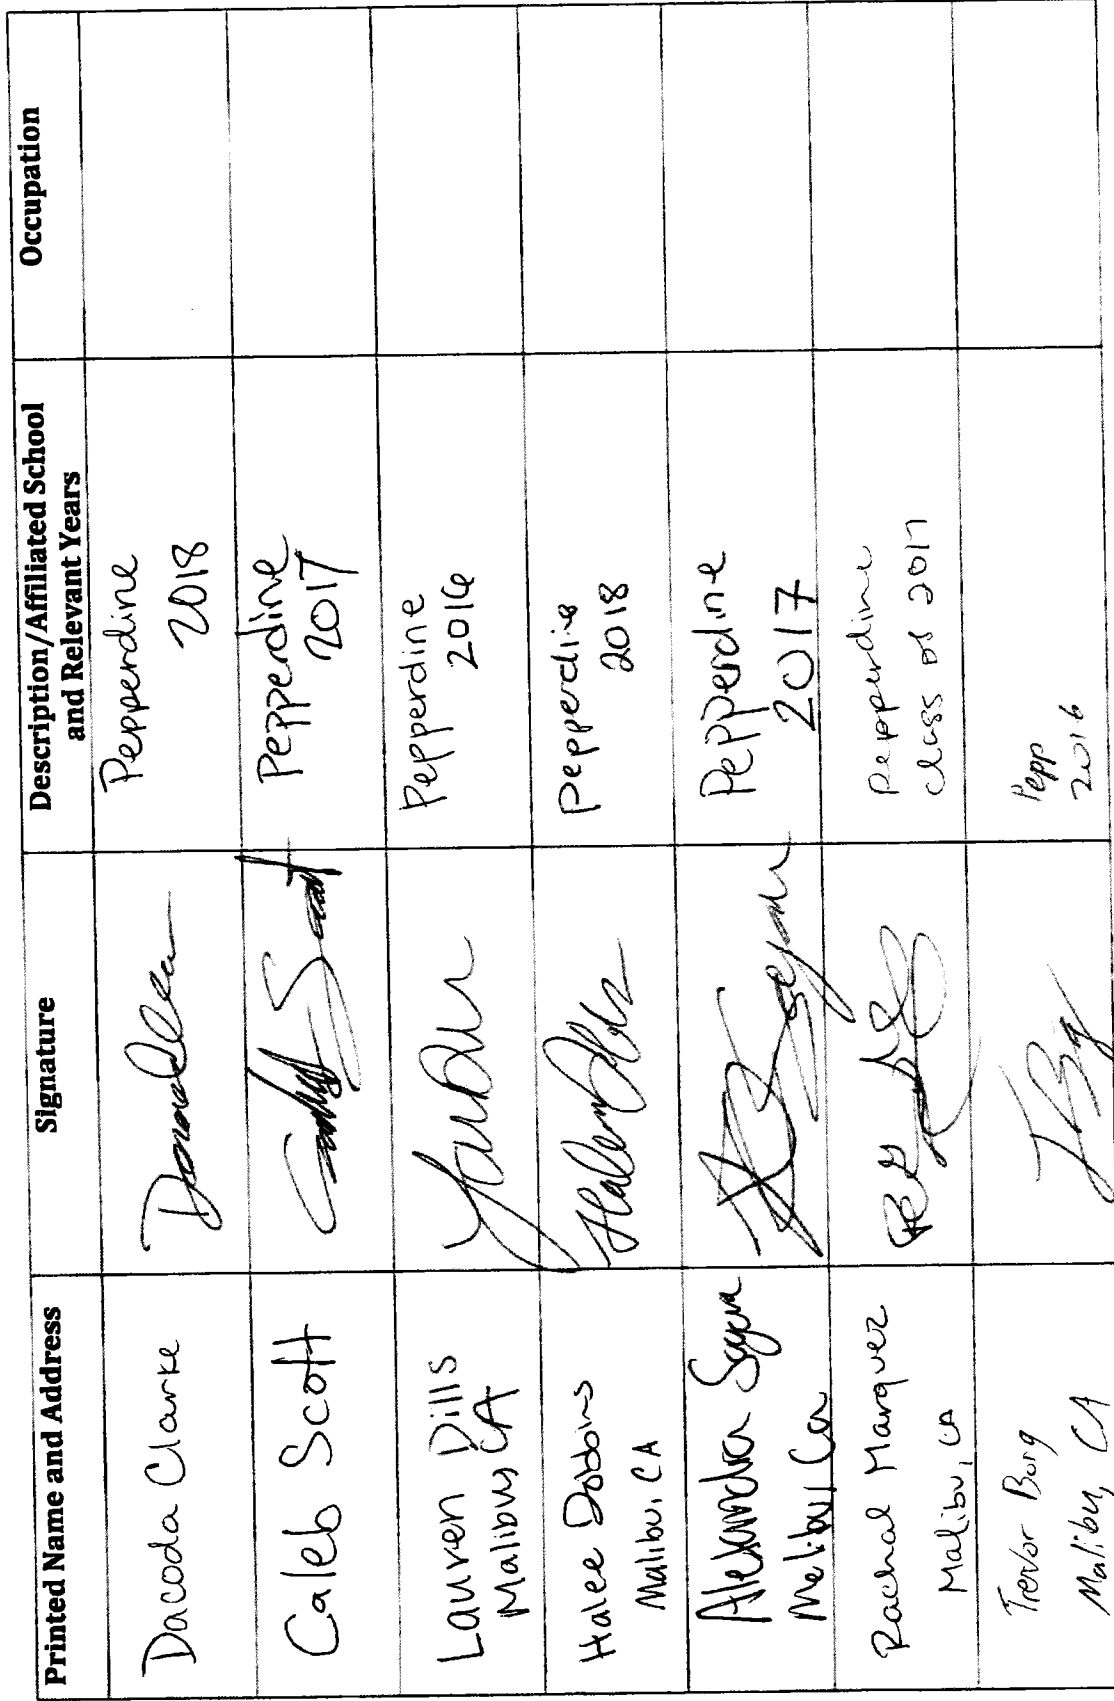 Printed Name and Address
Signature
Description/Affiliated School
and Relevant Years
Occupation
Dacoda Clarke
Pepperdine
2018
Caleb Scott
Pepperdine
2017
Lauren Dills
Malibu, CA
Pepperdine
2016
Halee Dobbins
Malibu, CA
pepperdine
2018
Alexandra
Malibu, Ca
Pepperdine
2017
Rachal Marquez
Malibu, CA
Pepperdine
class of 2017
Trevor Borg
Malibu, CA
Pepp
2016